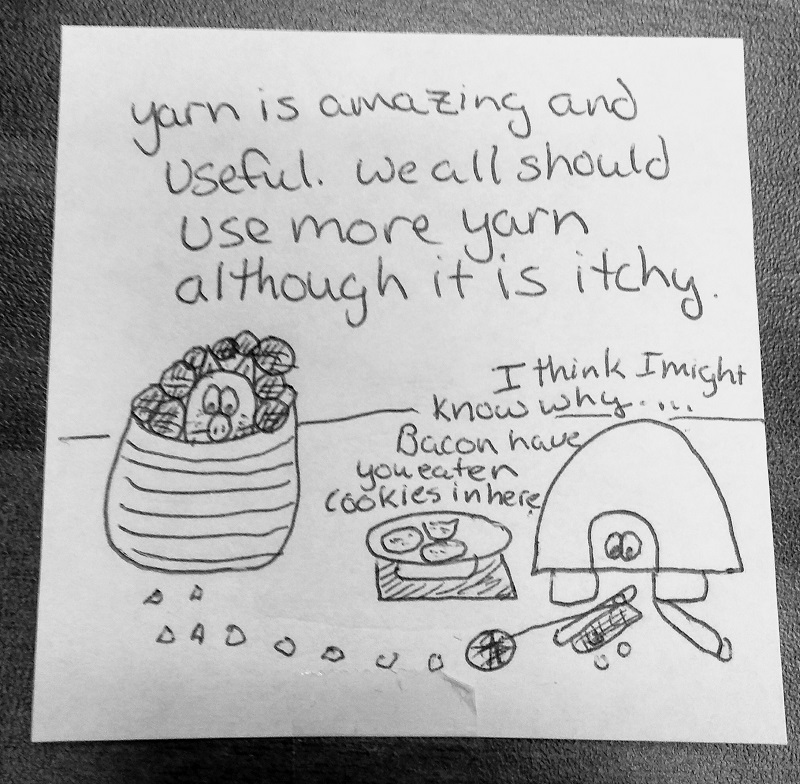 yarn is amazing and
useful. we all should
use more yarn
although it is itchy.
I think I might
know why....
Bacon have
you eaten
cookies in here